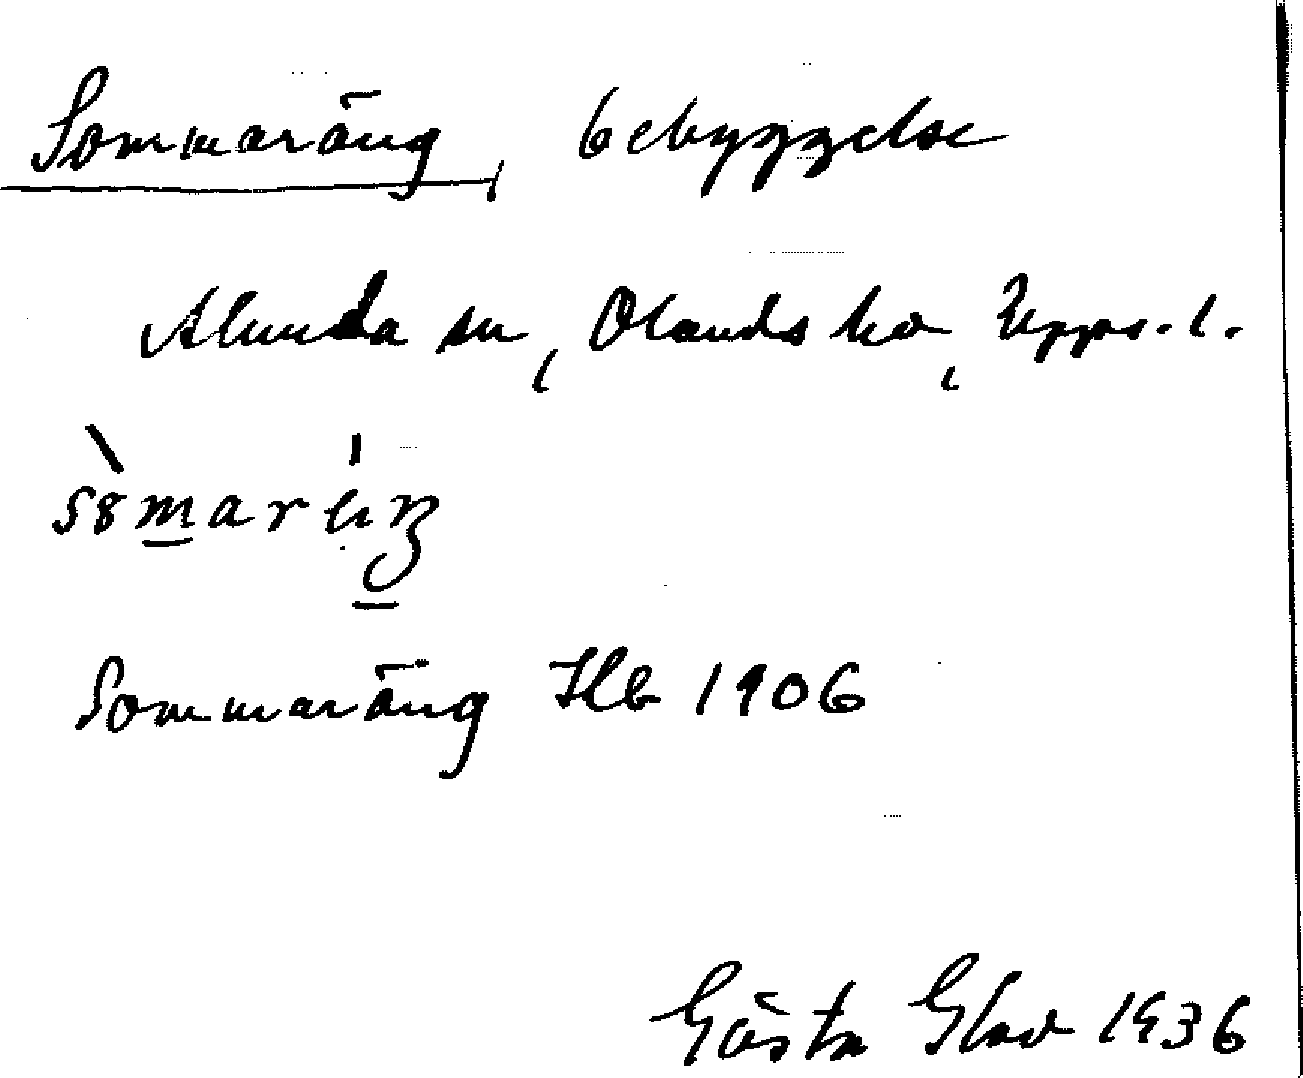 Sommaräng, bebyggelse
Alunda sn, Olands hd, Upps. l.
Sommaräng Hb 1906
Gösta Glad 1936